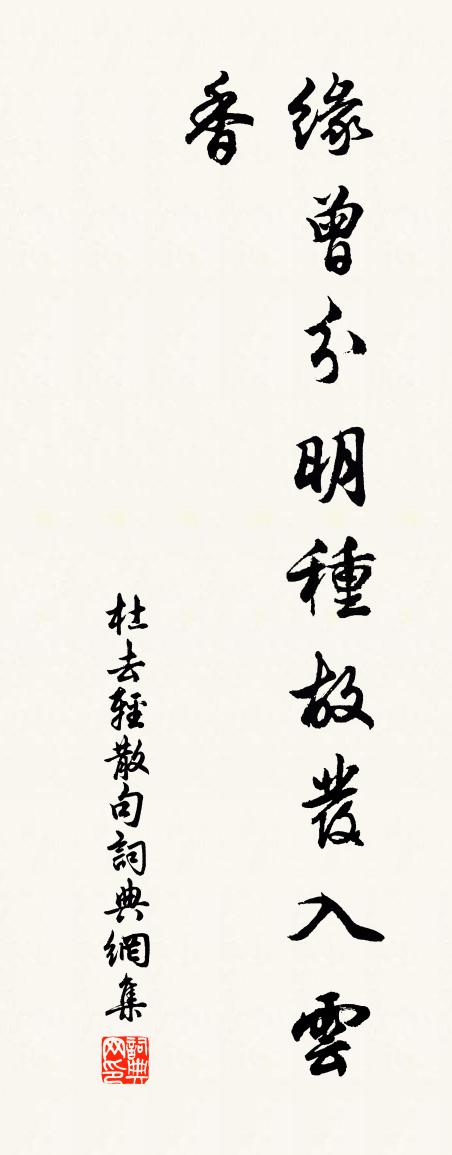 緣曾分明種故發入雲
香
杜去輕散句詞典網集
詞典网印